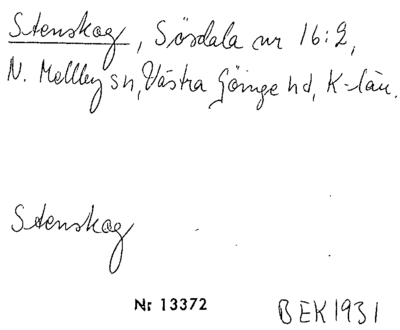 Stenskog, Sösdala nr 16:2,
N. Mellby sn, Västra Göinge hd, K-län.
Stenskog
Nr 13372
BEK 1931